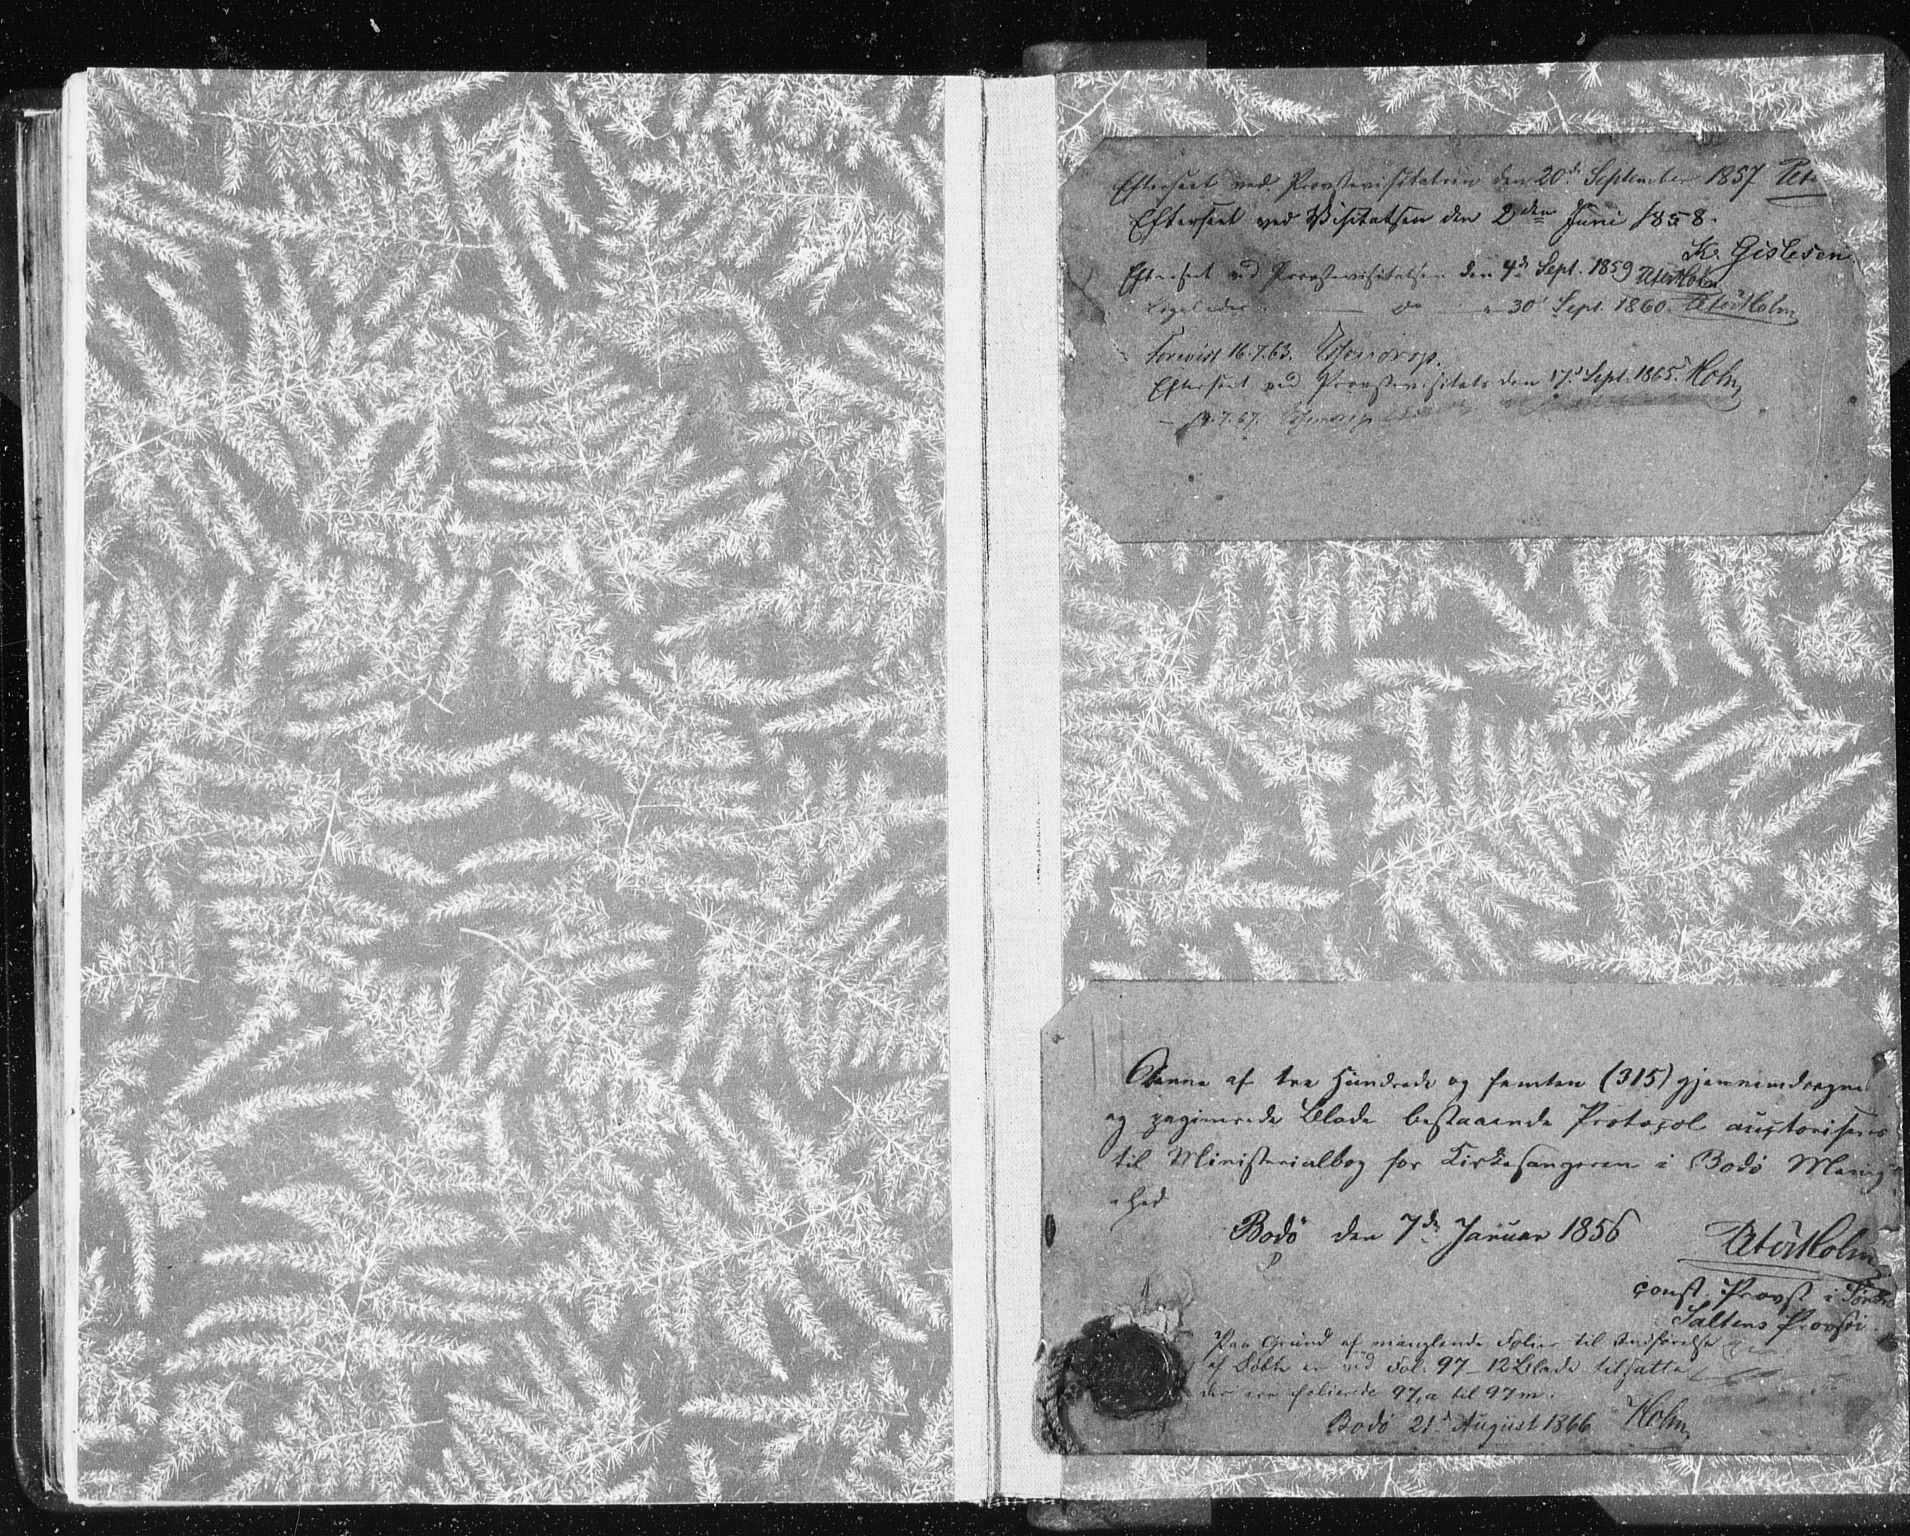 Efterseet ved Provstevisitatsen den 20de September 1857
Efterseet ved Visitatsen den 2den Juni 1858.
K. Gislesen
Efterseet ved Provstevisitatsen den 4de Sept. 1859
Ligeledes — do — 30' Sept. 1860.
Forevist 16.7.63.
Efterseet ved Provstevisitats den 17de Sept. 1865. Holm
Denne af tre Hundrede og femten (315) gjennemdragne
og paginerede Blade bestaaende Protocol auctoriseres
til Ministerialbog for Kirkesangeren i Bodö Menig-
-hed
Bodö den 7de Januar 1856
const. Provst i
Saltens Provsti.
Paa Grund af manglende Folier til Indførelse
af Døbte er ved Fol. 97 12 Blade tilsatte
der ere folierede 97,a til 97m.
Bodö 21de August 1866 Holm